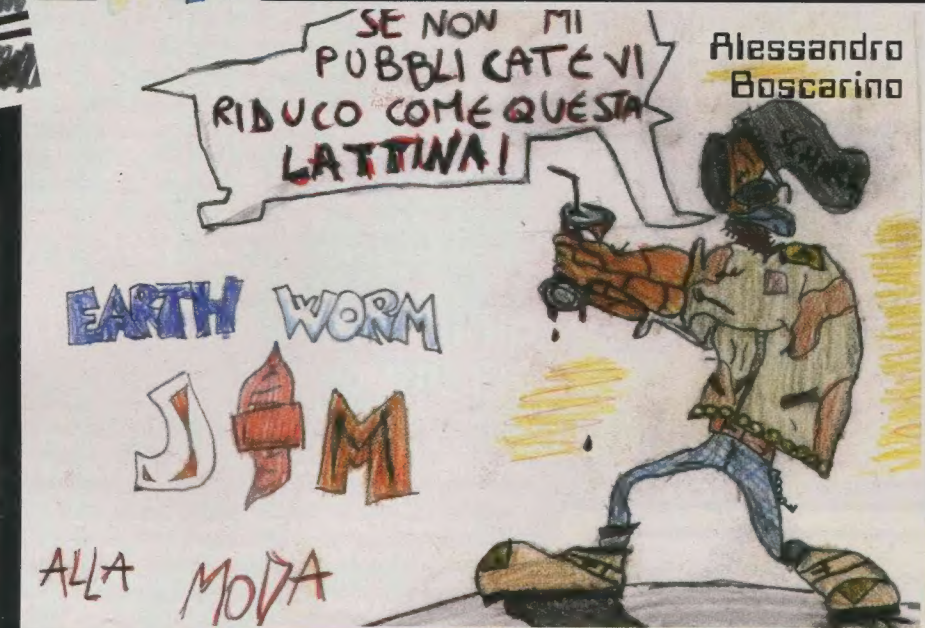 SE NON MI
PUBBLICATE VI
RIDUCO COME QUESTA
LATTINA!
Alessandro
Boscarino
EARTH WORM
JIM
ALLA MODA